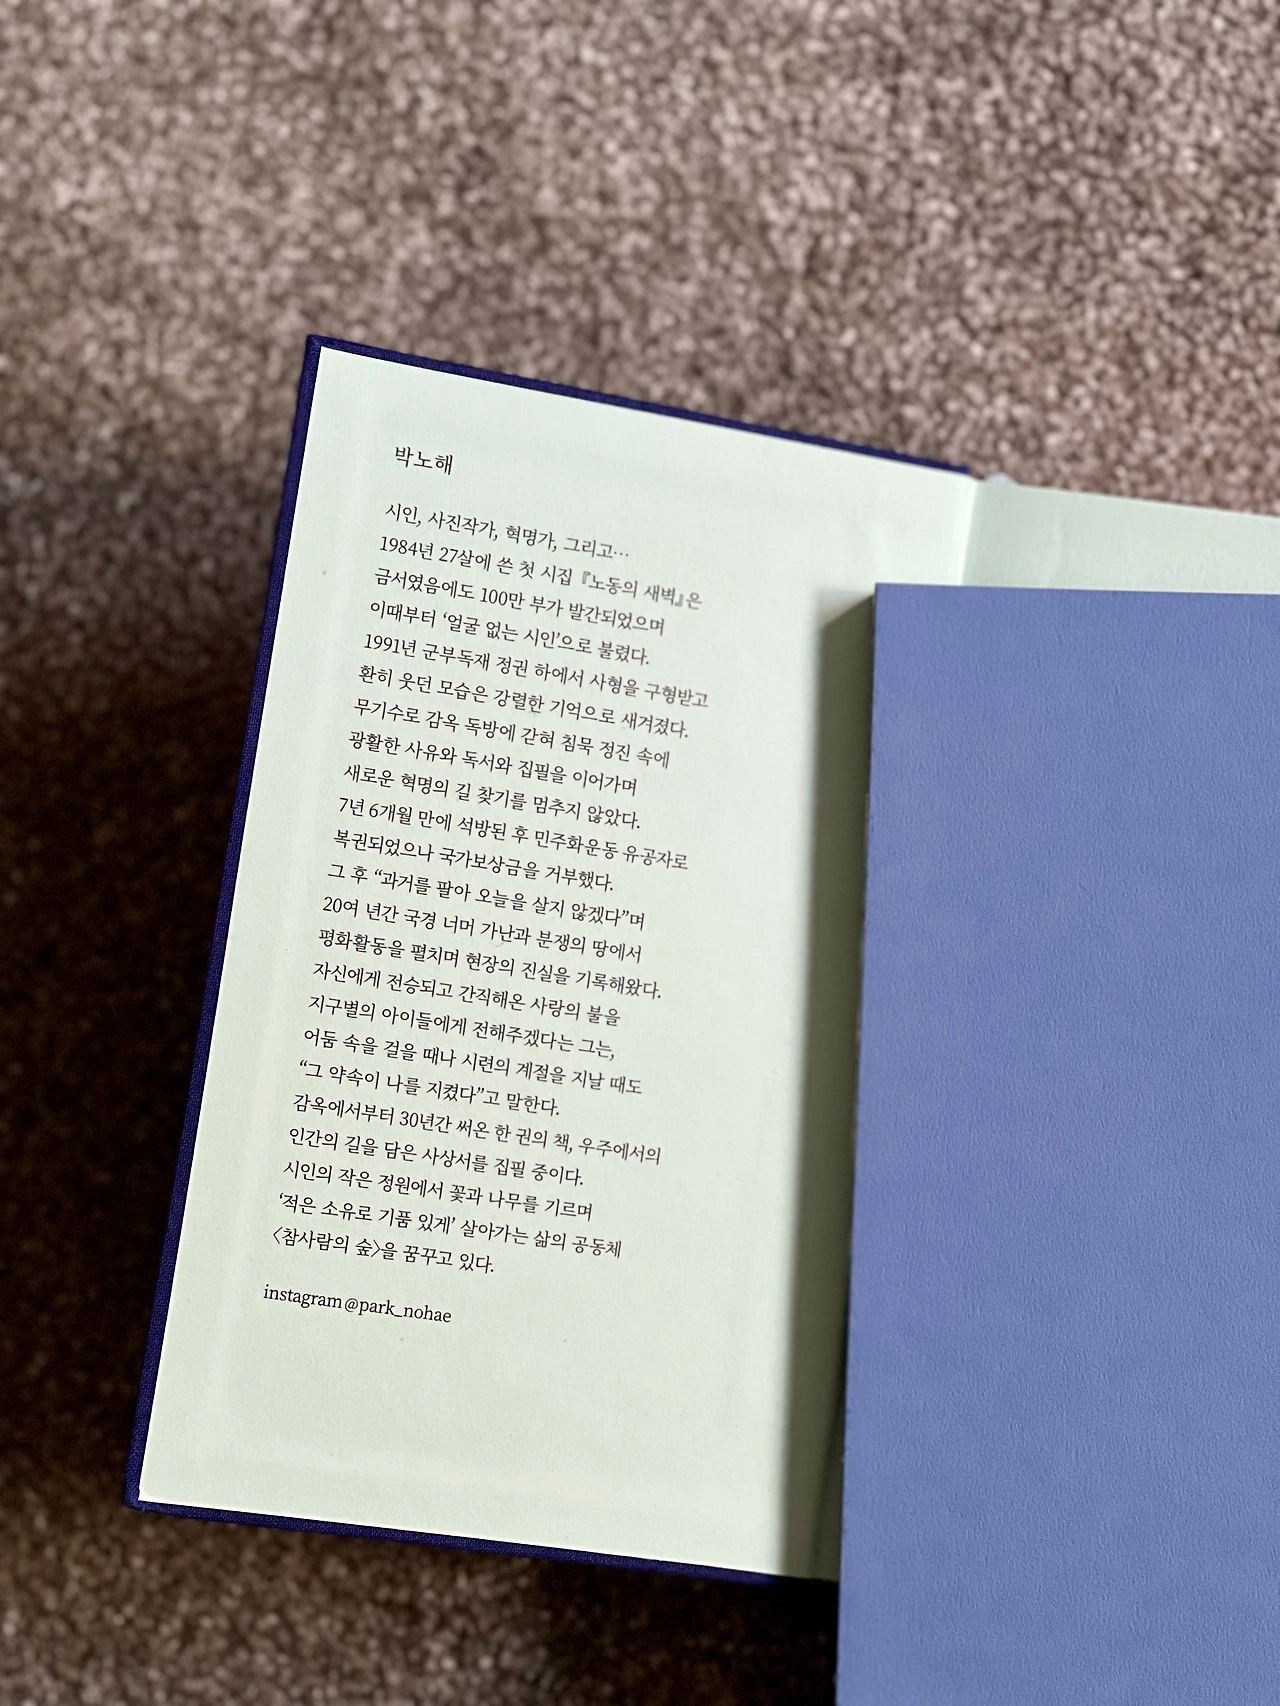 박노해
시인, 사진작가, 혁명가, 그리고…
1984년 27살에 쓴 첫 시집 『노동의 새벽』은
금서였음에도 100만 부가 발간되었으며
이때부터 ‘얼굴 없는 시인’으로 불렸다.
1991년 군부독재 정권 하에서 사형을 구형받고
환히 웃던 모습은 강렬한 기억으로 새겨졌다.
무기수로 감옥 독방에 갇혀 침묵 정진 속에
광활한 사유와 독서와 집필을 이어가며
새로운 혁명의 길 찾기를 멈추지 않았다.
7년 6개월 만에 석방된 후 민주화운동 유공자로
복권되었으나 국가보상금을 거부했다.
그 후 “과거를 팔아 오늘을 살지 않겠다”며
20여 년간 국경 너머 가난과 분쟁의 땅에서
평화활동을 펼치며 현장의 진실을 기록해왔다.
자신에게 전승되고 간직해온 사랑의 불을
지구별의 아이들에게 전해주겠다는 그는,
어둠 속을 걸을 때나 시련의 계절을 지날 때도
“그 약속이 나를 지켰다”고 말한다.
감옥에서부터 30년간 써온 한 권의 책, 우주에서의
인간의 길을 담은 사상서를 집필 중이다.
시인의 작은 정원에서 꽃과 나무를 기르며
‘적은 소유로 기품 있게’ 살아가는 삶의 공동체
〈참사람의 숲〉을 꿈꾸고 있다.
instagram@park_nohae